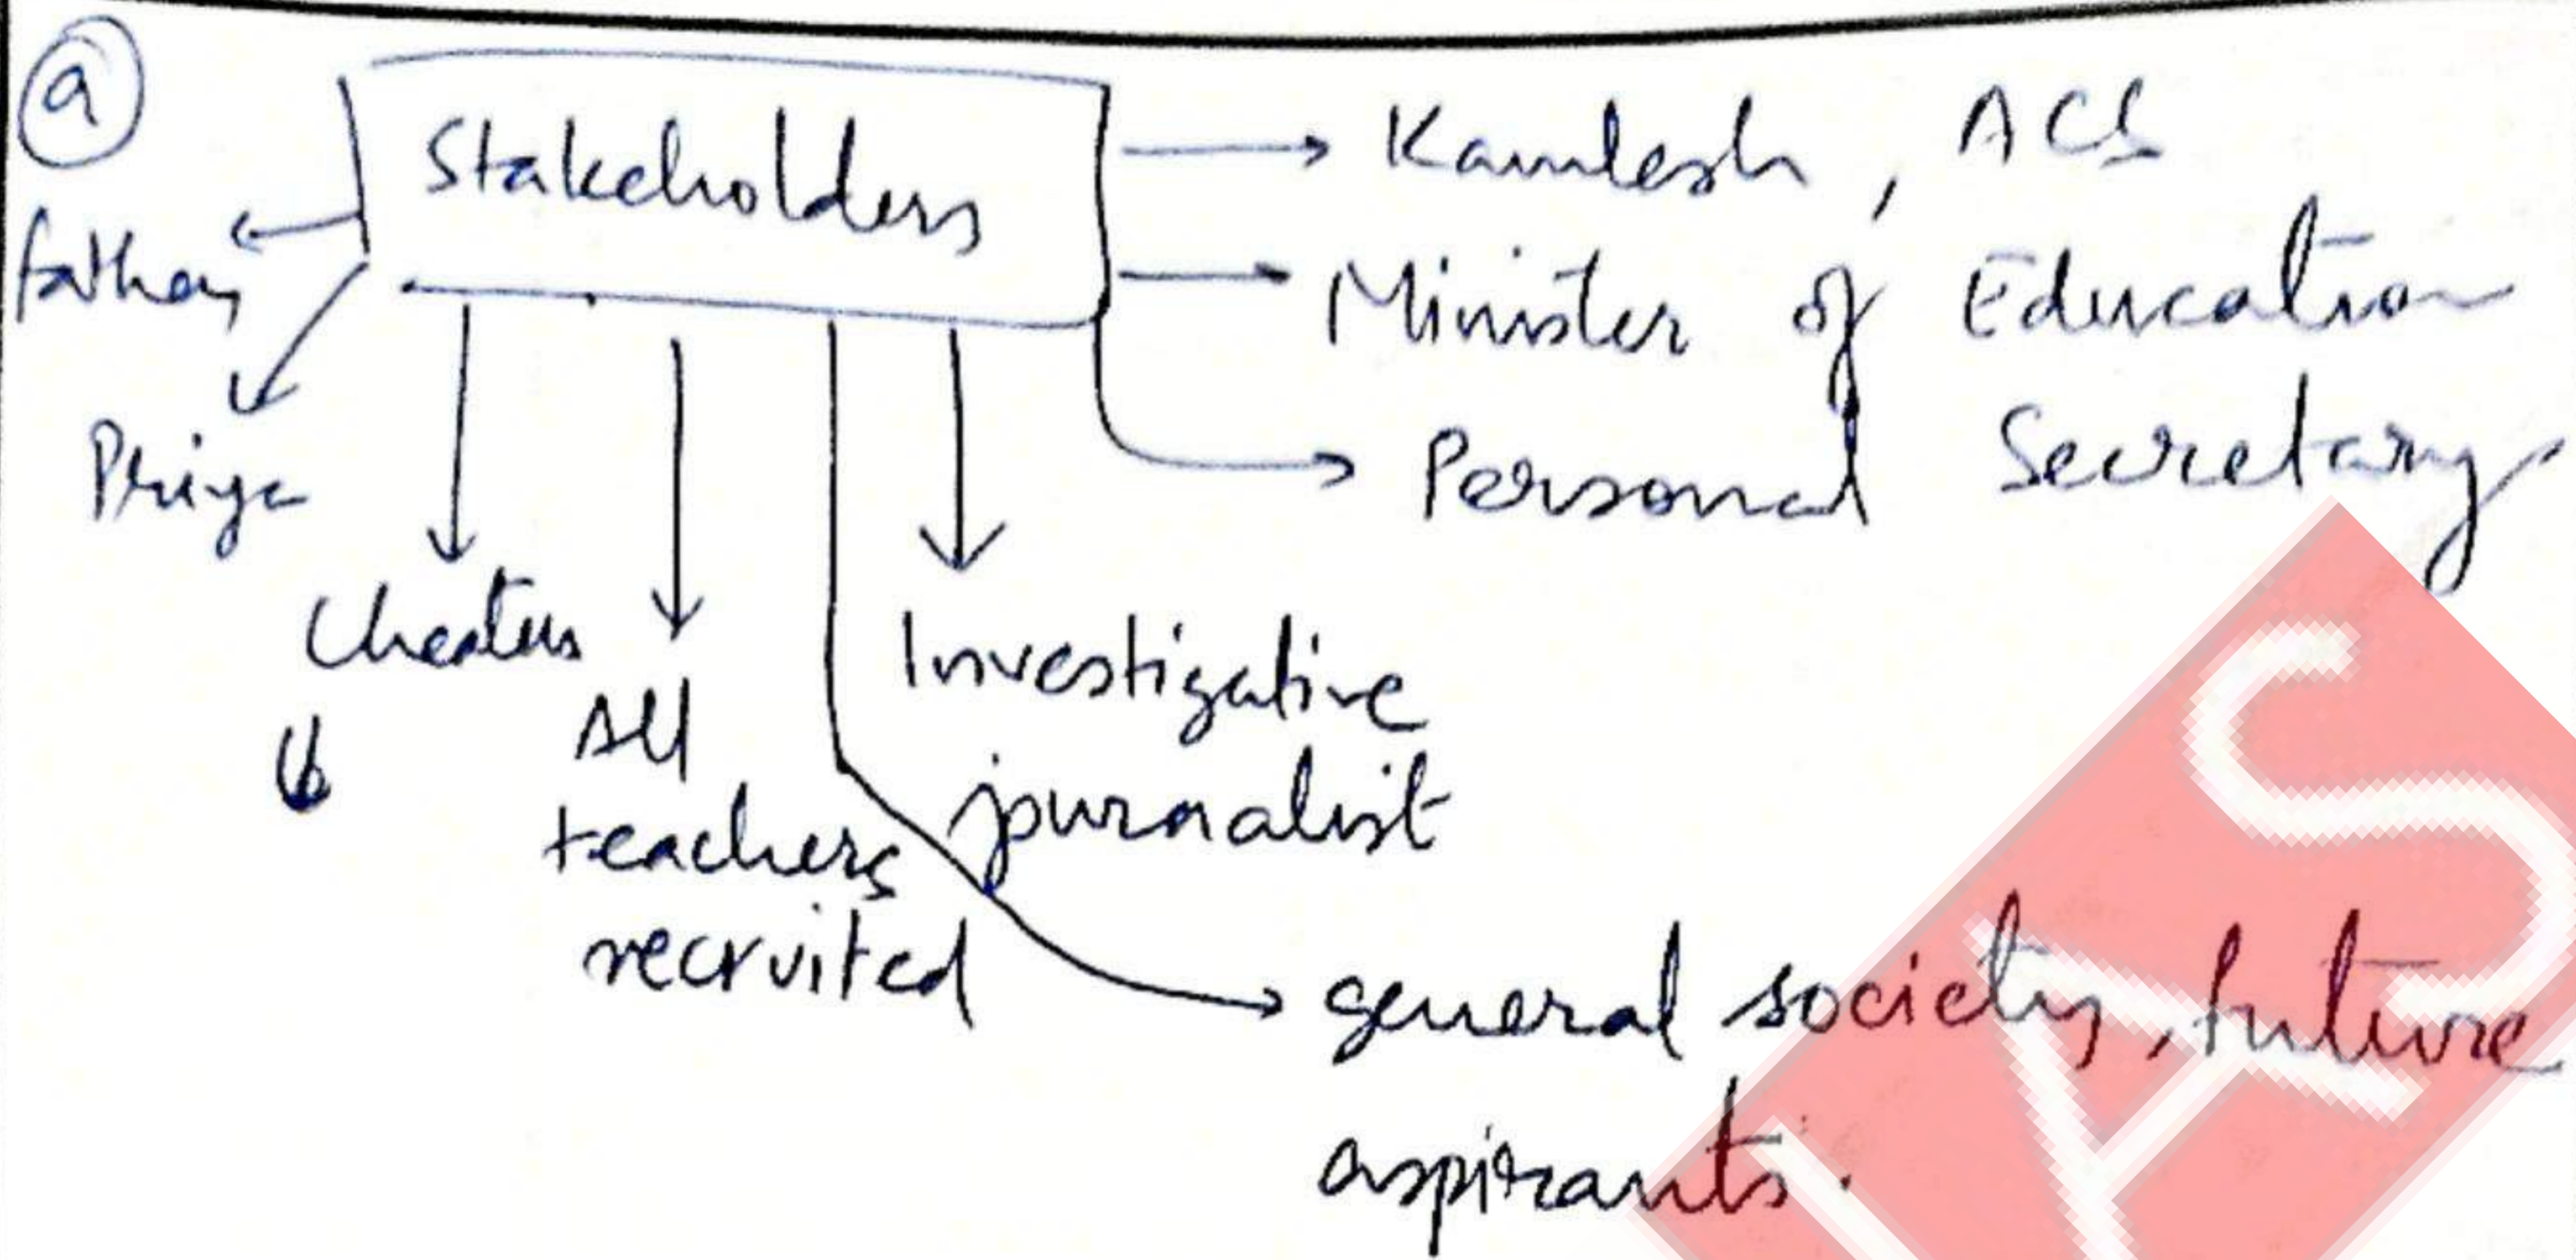 a
Stakeholders
Kamlesh, ACS
father
Minister of Education
Priya
Personal Secretary
Cheaters
All
teachers
recruited
Investigative
journalist
general society, future
aspirants.
IAS